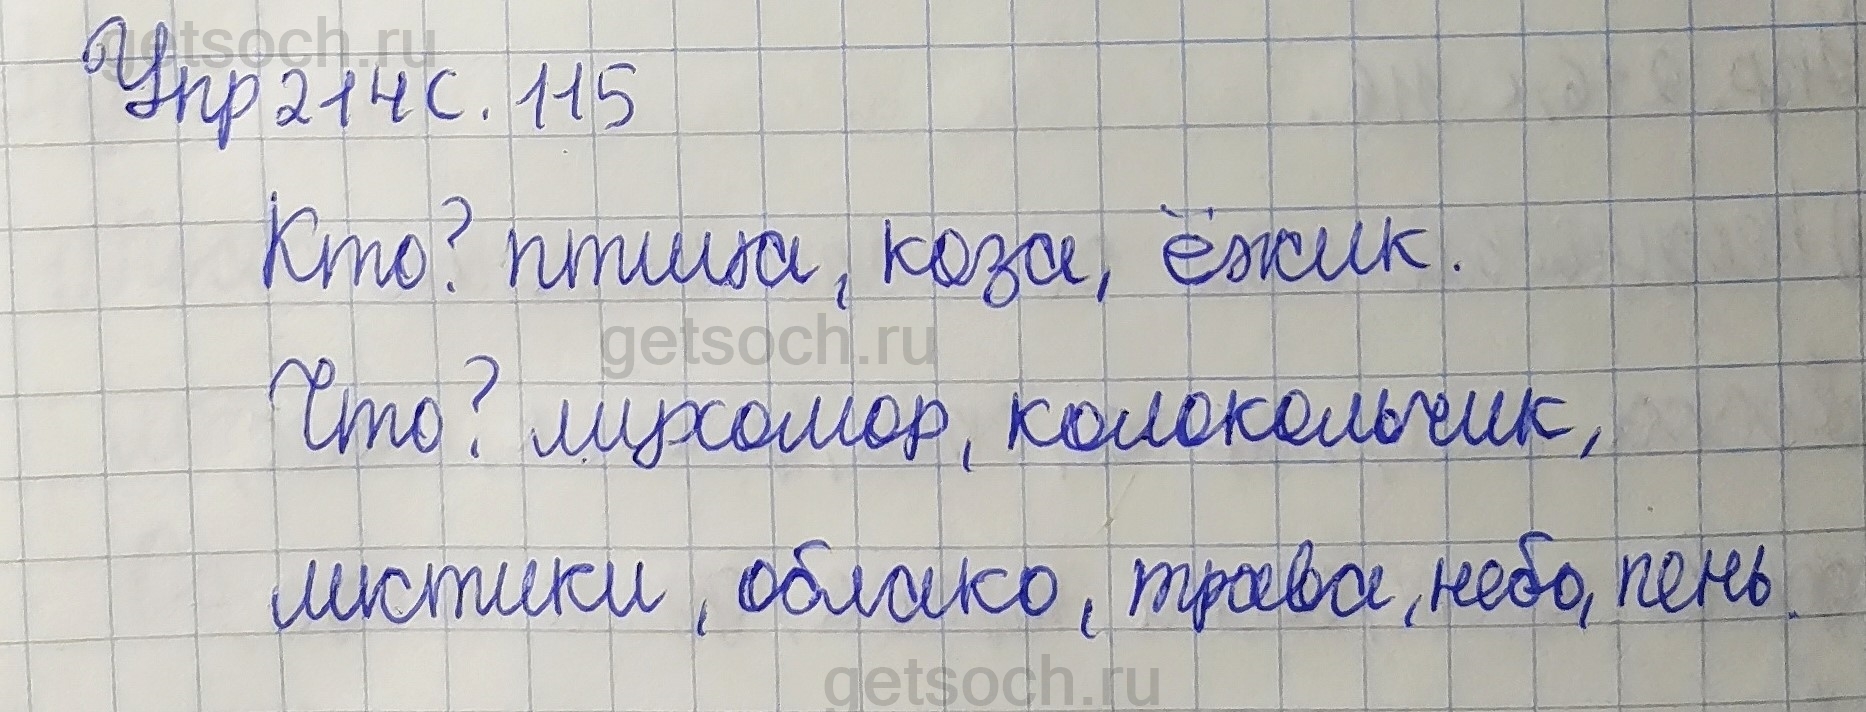 getsoch.ru
Упр 214 с. 115
Кто? птица, коза, ёжик.
getsoch.ru
Что? мухомор, колокольчик,
листики, облако, трава, небо, пень.
getsoch.ru